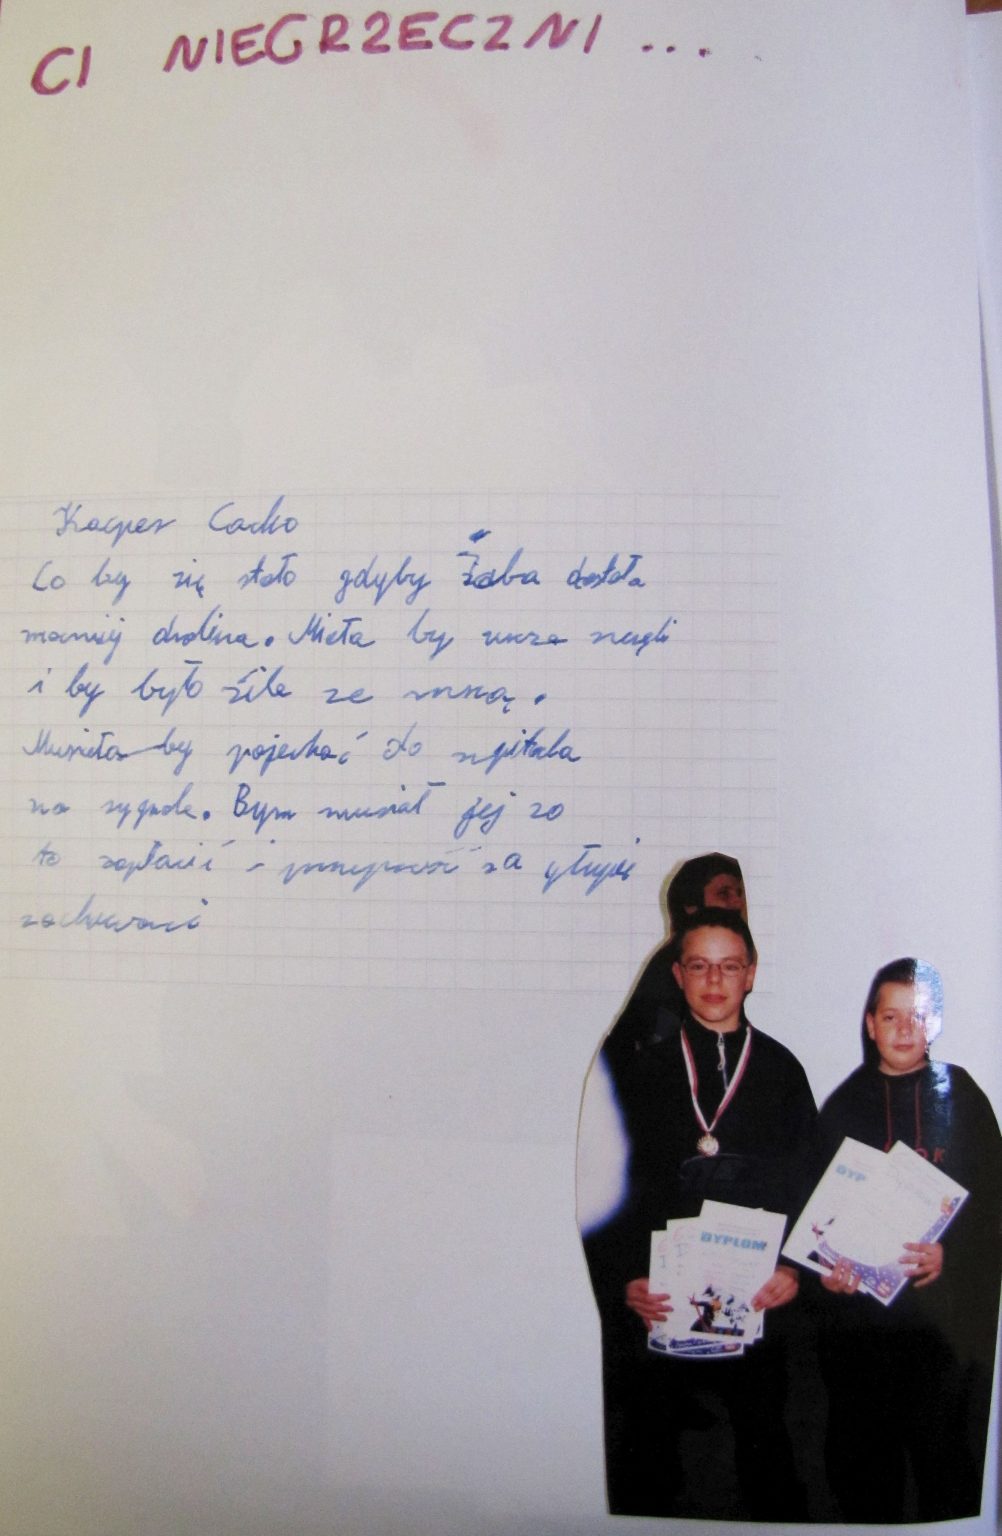 CI NIEGRZECZNI ...
Kacper Cacko
Co by się stało gdyby Żaba dostała
by
i by było źile ze mną.
Musiała by pojechać do szpitala
na sygnale. Bym musiał jej za
to zapłacić i za głupie
zachowanie
DYPLOM
DYP
OK